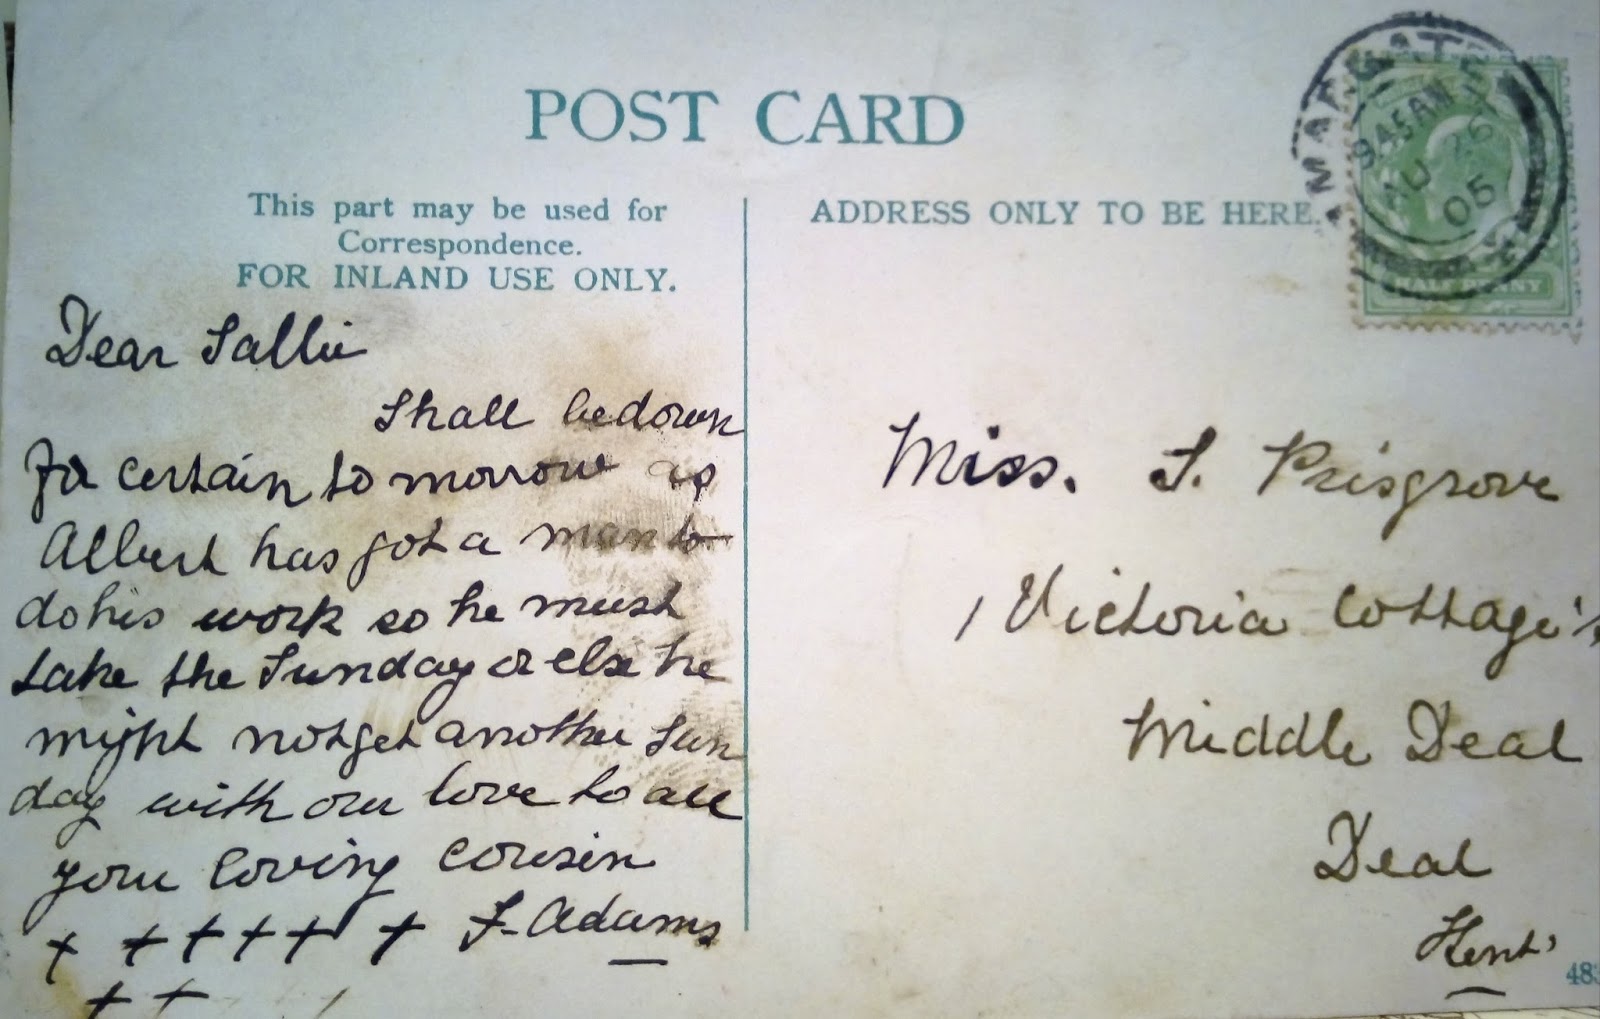 POST CARD
This part may be used for
Correspondence.
FOR INLAND USE ONLY.
ADDRESS ONLY TO BE HERE.
MARGATE
9 45 AM
AU 26
05
HALF PENNY
Dear Sallie
Shall be down
for certain to morrow as
Albert has got a man to
do his work so he must
take the Sunday or else he
might not get another Sun
day with our love to all
your loving cousin
+ + + + + + F. Adams
+ +
Miss. S. Prisgrove
1 Victoria Cottage's
Middle Deal
Deal
Kent